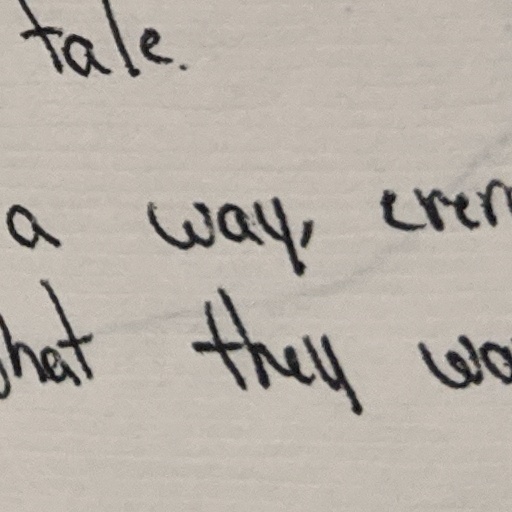 tale.
a way, even
hat they wo